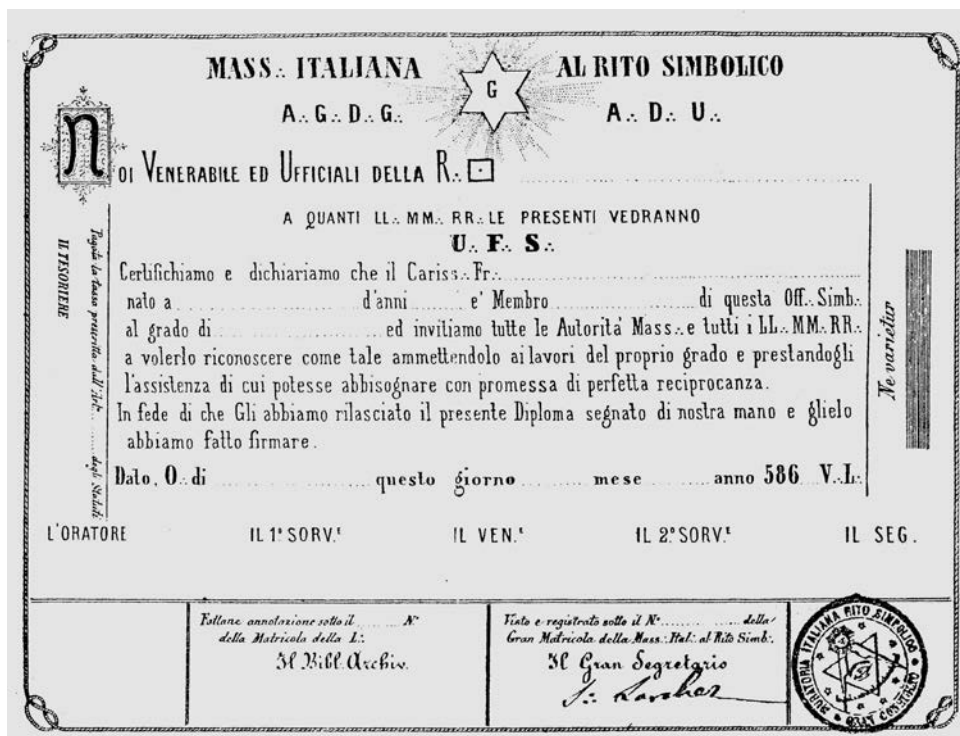 MASS∴ ITALIANA AL RITO SIMBOLICO
G
A∴ G∴ D∴ G∴ A∴ D∴ U∴
NOI VENERABILE ED UFFICIALI DELLA R∴
A QUANTI LL∴ MM∴ RR∴ LE PRESENTI VEDRANNO
U∴ F∴ S∴
Certifichiamo e dichiariamo che il Cariss∴ Fr∴
nato a d'anni e' Membro di questa Off∴ Simb∴
al grado di ed invitiamo tutte le Autorità Mass∴ e tutti i LL∴ MM∴ RR∴
a volerlo riconoscere come tale ammettendolo ai lavori del proprio grado e prestandogli
l'assistenza di cui potesse abbisognare con promessa di perfetta reciprocanza.
In fede di che Gli abbiamo rilasciato il presente Diploma segnato di nostra mano e glielo
abbiamo fatto firmare.
Dato, O∴ di questo giorno mese anno 586 V∴L∴
IL TESORIERE
Pagata la tassa prescritta dall'Art. degli Statuti
Ne varietur
L'ORATORE IL 1º SORV.ᴱ IL VEN.ᴱ IL 2º SORV.ᴱ IL SEG.
Fattane annotazione sotto il Nº
della Matricola della L∴
Il Bibl. Archiv.
Visto e registrato sotto il Nº della
Gran Matricola della Mass∴ Ital∴ al Rito Simb∴
Il Gran Segretario
MURATORIA ITALIANA RITO SIMBOLICO
GRAN CONSIGLIO